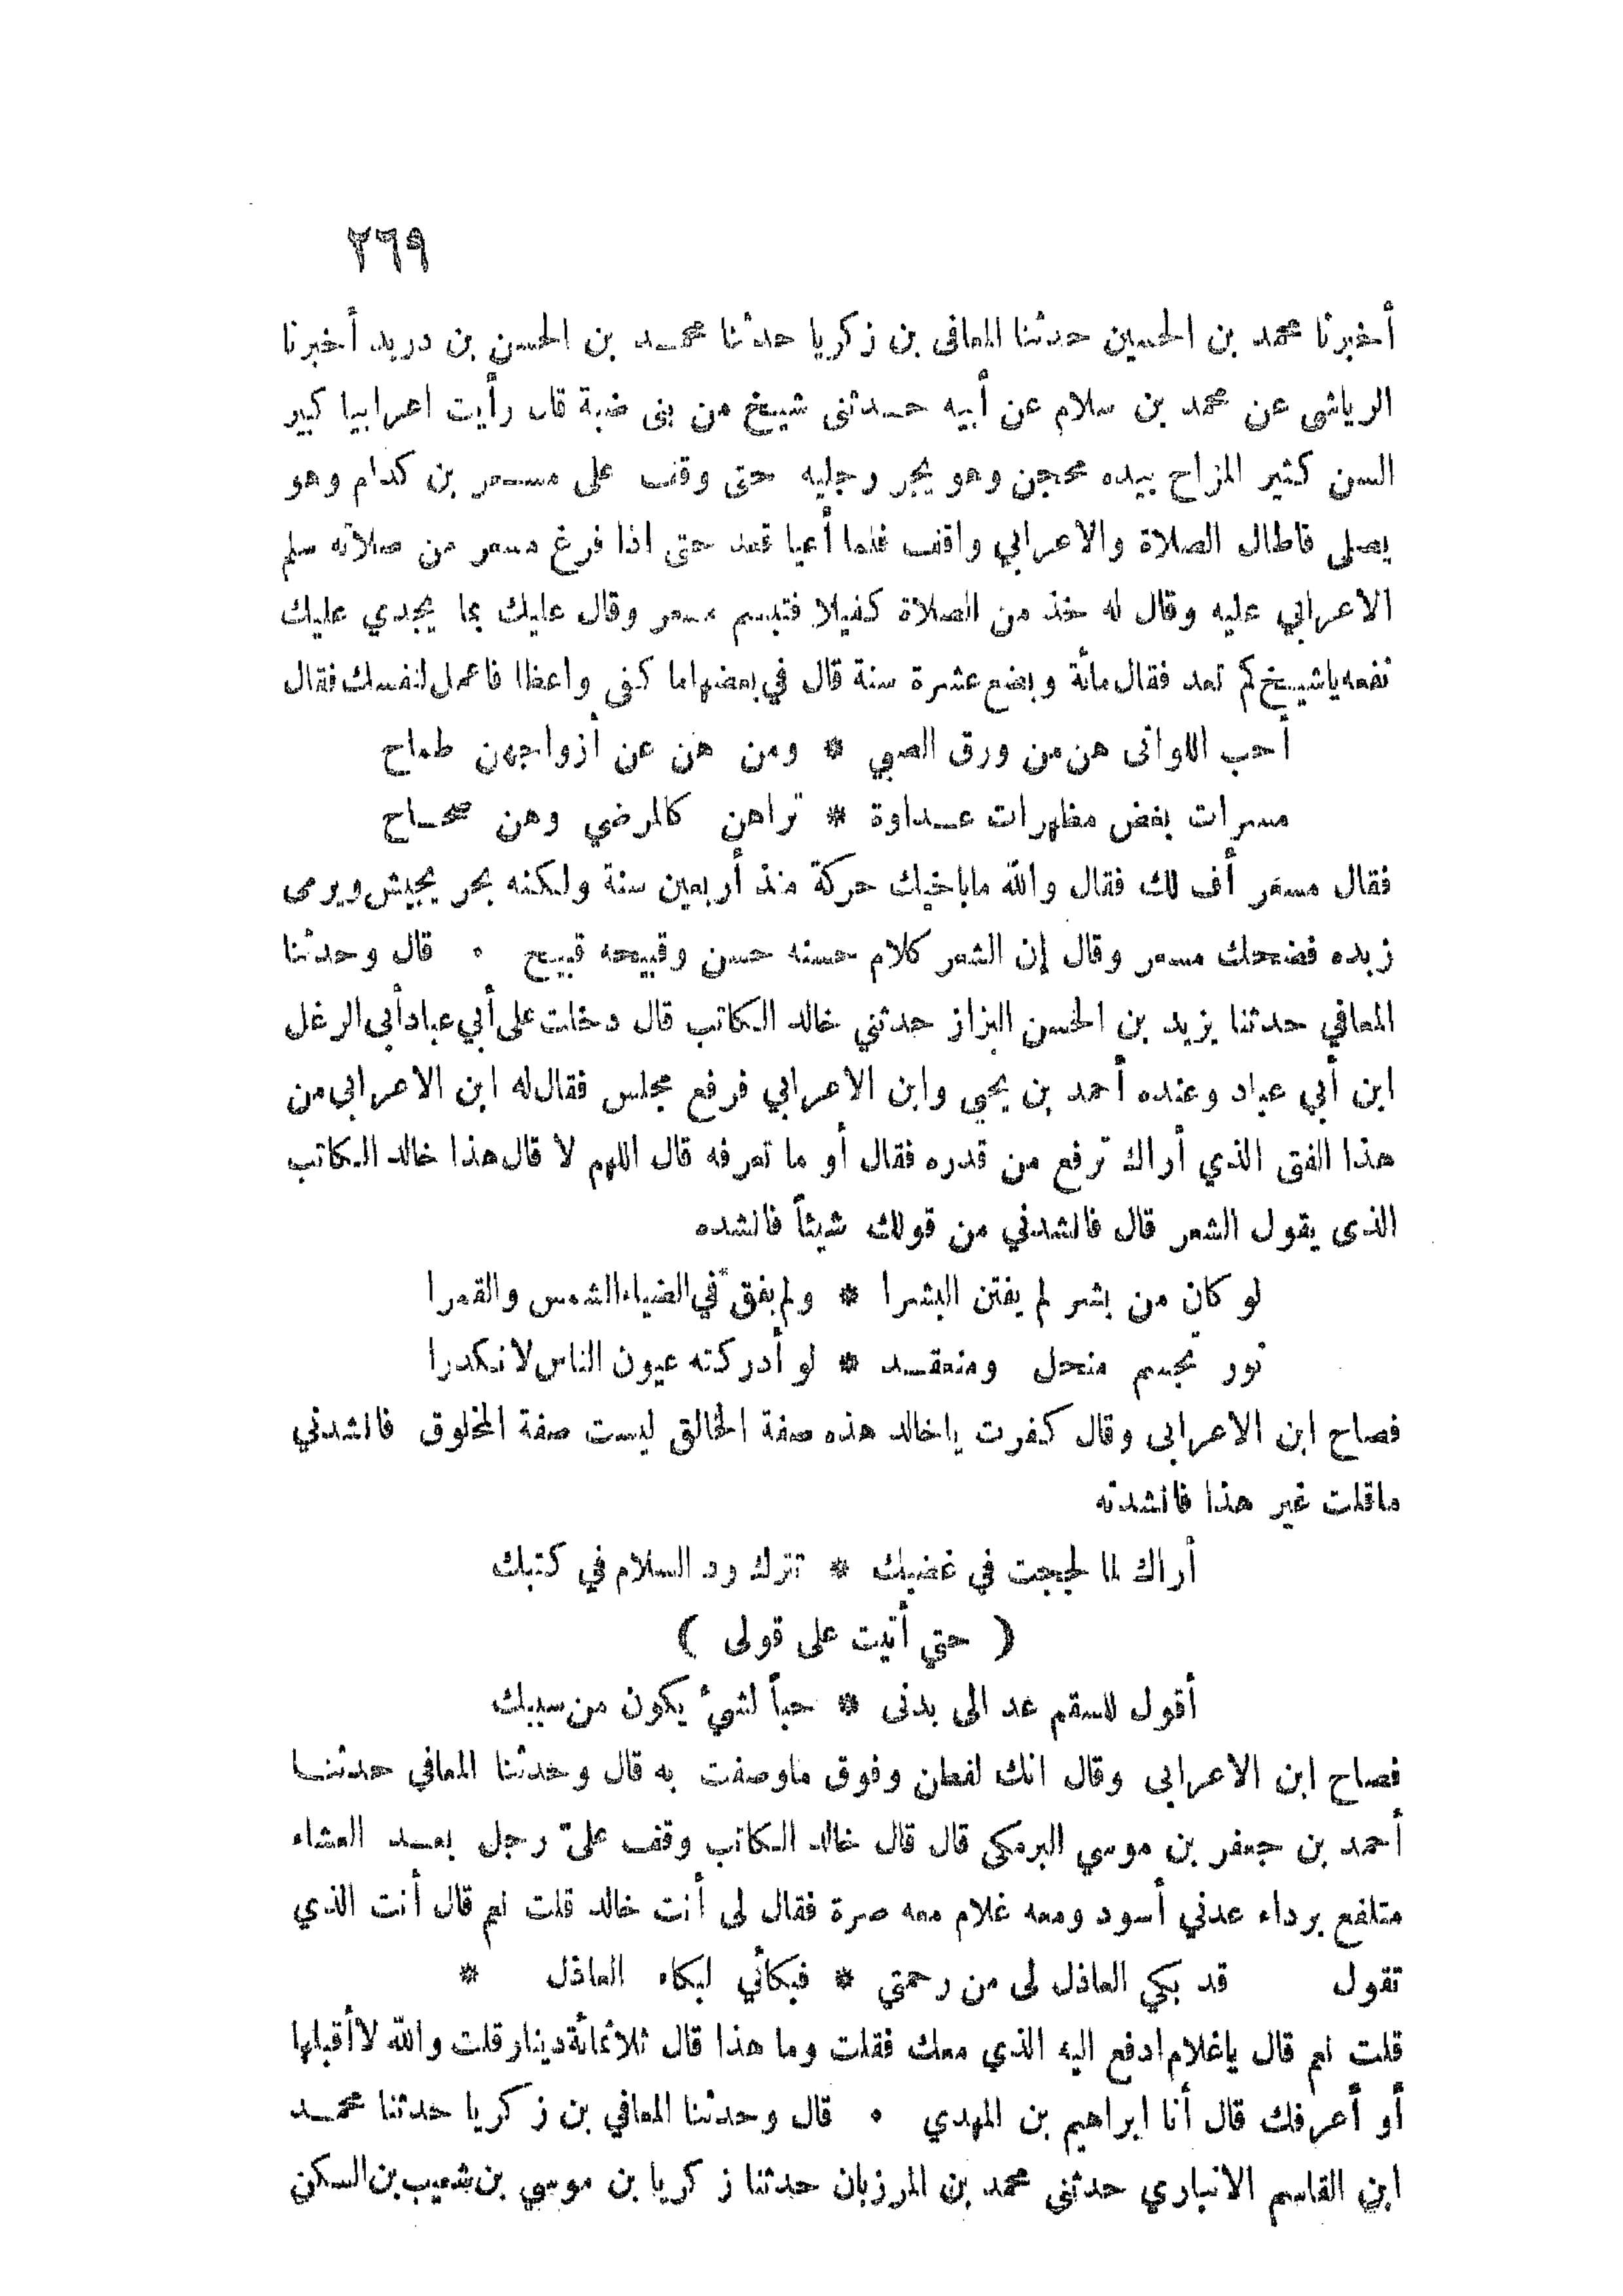 ٢٦٩
أخبرنا محمد بن الحسين حدثنا المعافى بن زكريا حدثنا محمد بن الحسن بن دريد أخبرنا
الرياشى عن محمد بن سلام عن أبيه حدثنى شيخ من بنى ضبة قال رأيت اعرابيا كبير
السن كثير المزاح بيده محجن وهو يجر رجليه حتى وقف على مسعر بن كدام وهو
يصلى فاطال الصلاة والاعرابي واقف فلما أعيا قعد حتى اذا فرغ مسعر من صلاته سلم
الاعرابي عليه وقال له خذ من الصلاة كفيلا فتبسم مسعر وقال عليك بما يجدي عليك
نفعه ياشيخ كم تعد فقال مائة وبضع عشرة سنة قال في بعضها ما كفى واعظا فاعمل لنفسك فقال
أحب اللواتى هن من ورق الصبي * ومن هن عن أزواجهن طماح
مسرات بغض مظهرات عداوة * تراهن كالمرضي وهن صحاح
فقال مسعر أف لك فقال والله ماباخيك حركة منذ أربعين سنة ولكنه بحر يجيش ويرمى
زبده فضحك مسعر وقال إن الشعر كلام حسنه حسن وقبيحه قبيح • قال وحدثنا
المعافي حدثنا يزيد بن الحسن البزاز حدثني خالد الكاتب قال دخلت على أبي عباد أبى الرغل
ابن أبي عباد وعنده أحمد بن يحيى وابن الاعرابي فرفع مجلس فقال له ابن الاعرابي من
هذا الفتى الذي أراك ترفع من قدره فقال أو ما تعرفه قال اللهم لا قال هذا خالد الكاتب
الذى يقول الشعر قال فانشدني من قولك شيئاً فانشده
لو كان من بشر لم يفتن البشرا * ولم يفق في الضياء الشمس والقمرا
نور تجسم منحل ومنعقد * لو أدركته عيون الناس لانكدرا
فصاح ابن الاعرابى وقال كفرت ياخالد هذه صفة الخالق ليست صفة المخلوق فانشدني
ماقلت غير هذا فانشدته
أراك لما لججت في غضبك * تترك رد السلام في كتبك
( حتي أتيت على قولى )
أقول للسقم عد الى بدنى * حباً لشيء يكون من سببك
فصاح ابن الاعرابى وقال انك لفطن وفوق ماوصفت به قال وحدثنا المعافي حدثنا
أحمد بن جعفر بن موسي البرمكى قال قال خالد الكاتب وقف عليّ رجل بعد العشاء
متلفع برداء عدني أسود ومعه غلام معه صرة فقال لى أنت خالد قلت نعم قال أنت الذي
تقول قد بكي العاذل لى من رحمتي * فبكائي لبكاء العاذل *
قلت نعم قال ياغلام ادفع اليه الذي معك فقلت وما هذا قال ثلاثمائة دينار قلت والله لا أقبلها
أو أعرفك قال أنا ابراهيم بن المهدي • قال وحدثنا المعافي بن زكريا حدثنا محمد
ابن القاسم الانباري حدثنى محمد بن المرزبان حدثنا زكريا بن موسي بن شعيب بن السكن